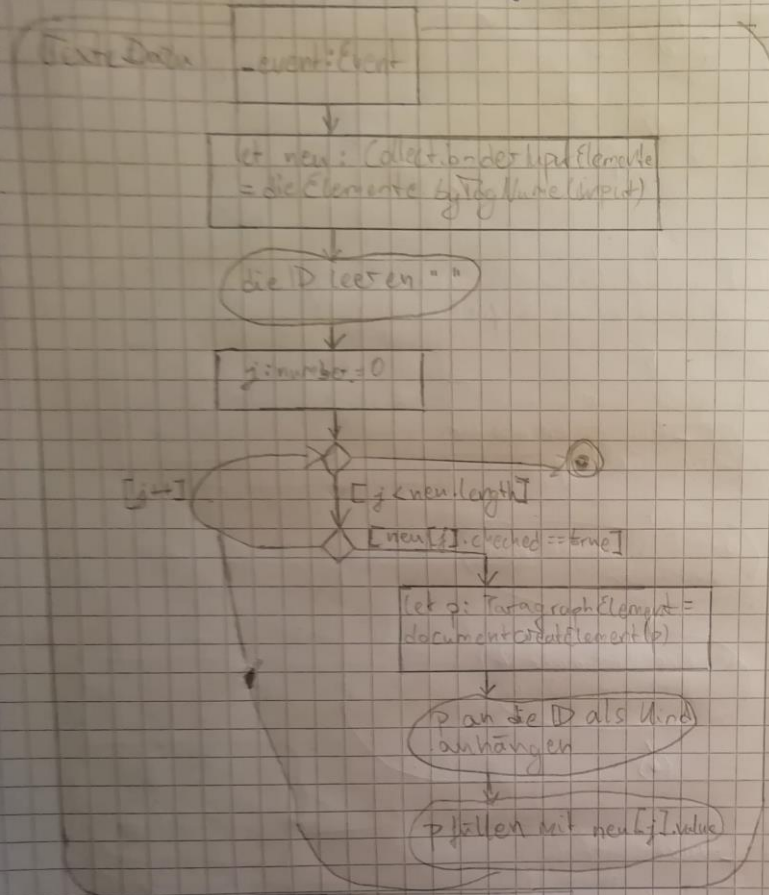 _event: Event
let neu: Collection des Input Elemente
= die Elemente by Tag Name (input)
die ID leeren " "
j: number = 0
[j++]
[j < neu.length]
[neu[j].checked == true]
let p: ParagraphElement =
document.createElement(p)
p an die ID als Kind
anhängen
p füllen mit neu[j].value